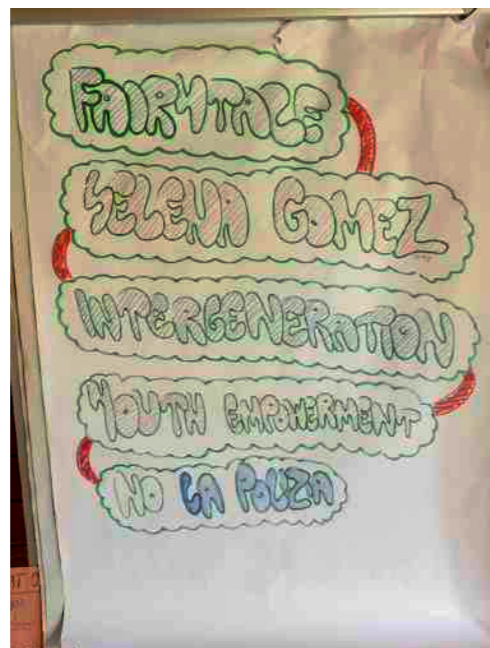 FAIRYTALE
SELENA GOMEZ
INTERGENERATION
YOUTH EMPOWERMENT
NO LA POLIZA